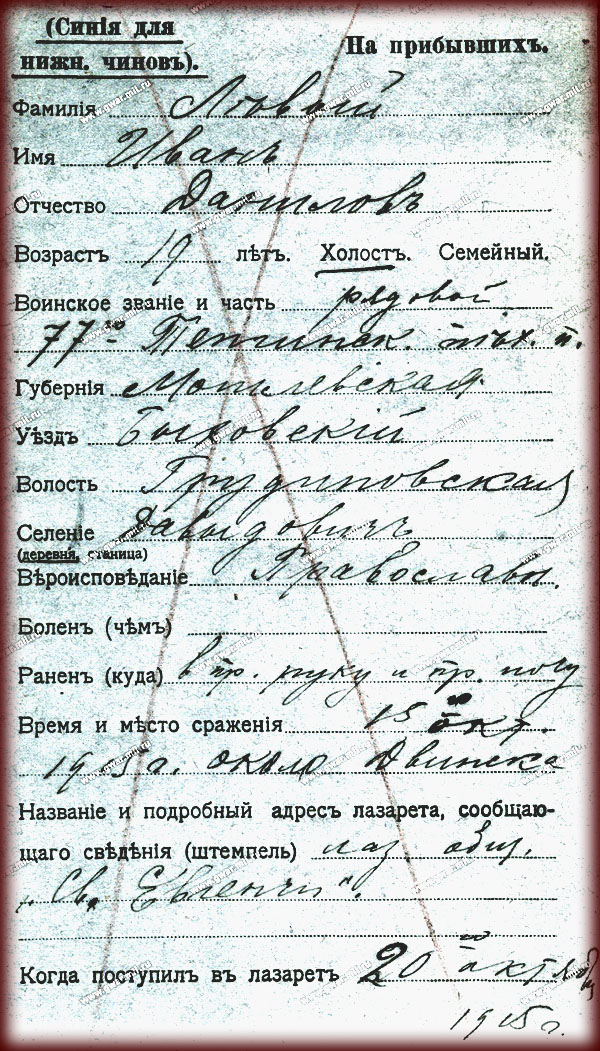 (Синія для
нижн. чиновъ).
На прибывшихъ.
Фамилія Лѣвый
Имя Иванъ
Отчество Даниловъ
Возрастъ 19 лѣтъ. Холостъ. Семейный.
Воинское званіе и часть рядовой
77го Тенгинск. пѣх. п.
Губернія Могилевская
Уѣздъ Быховскій
Волость Грудиновская
Селеніе Давыдовичъ
(деревня, станица)
Вѣроисповѣданіе Православн.
Боленъ (чѣмъ)
Раненъ (куда) в пр. руку и пр. ногу
Время и мѣсто сраженія 15го окт.
1915г. около Двинска
Названіе и подробный адресъ лазарета, сообщаю-
щаго свѣдѣнія (штемпель) лаз. общ.
"Св.
Когда поступилъ въ лазаретъ 20го октября
1915 г.
www.gwar.mil.ru